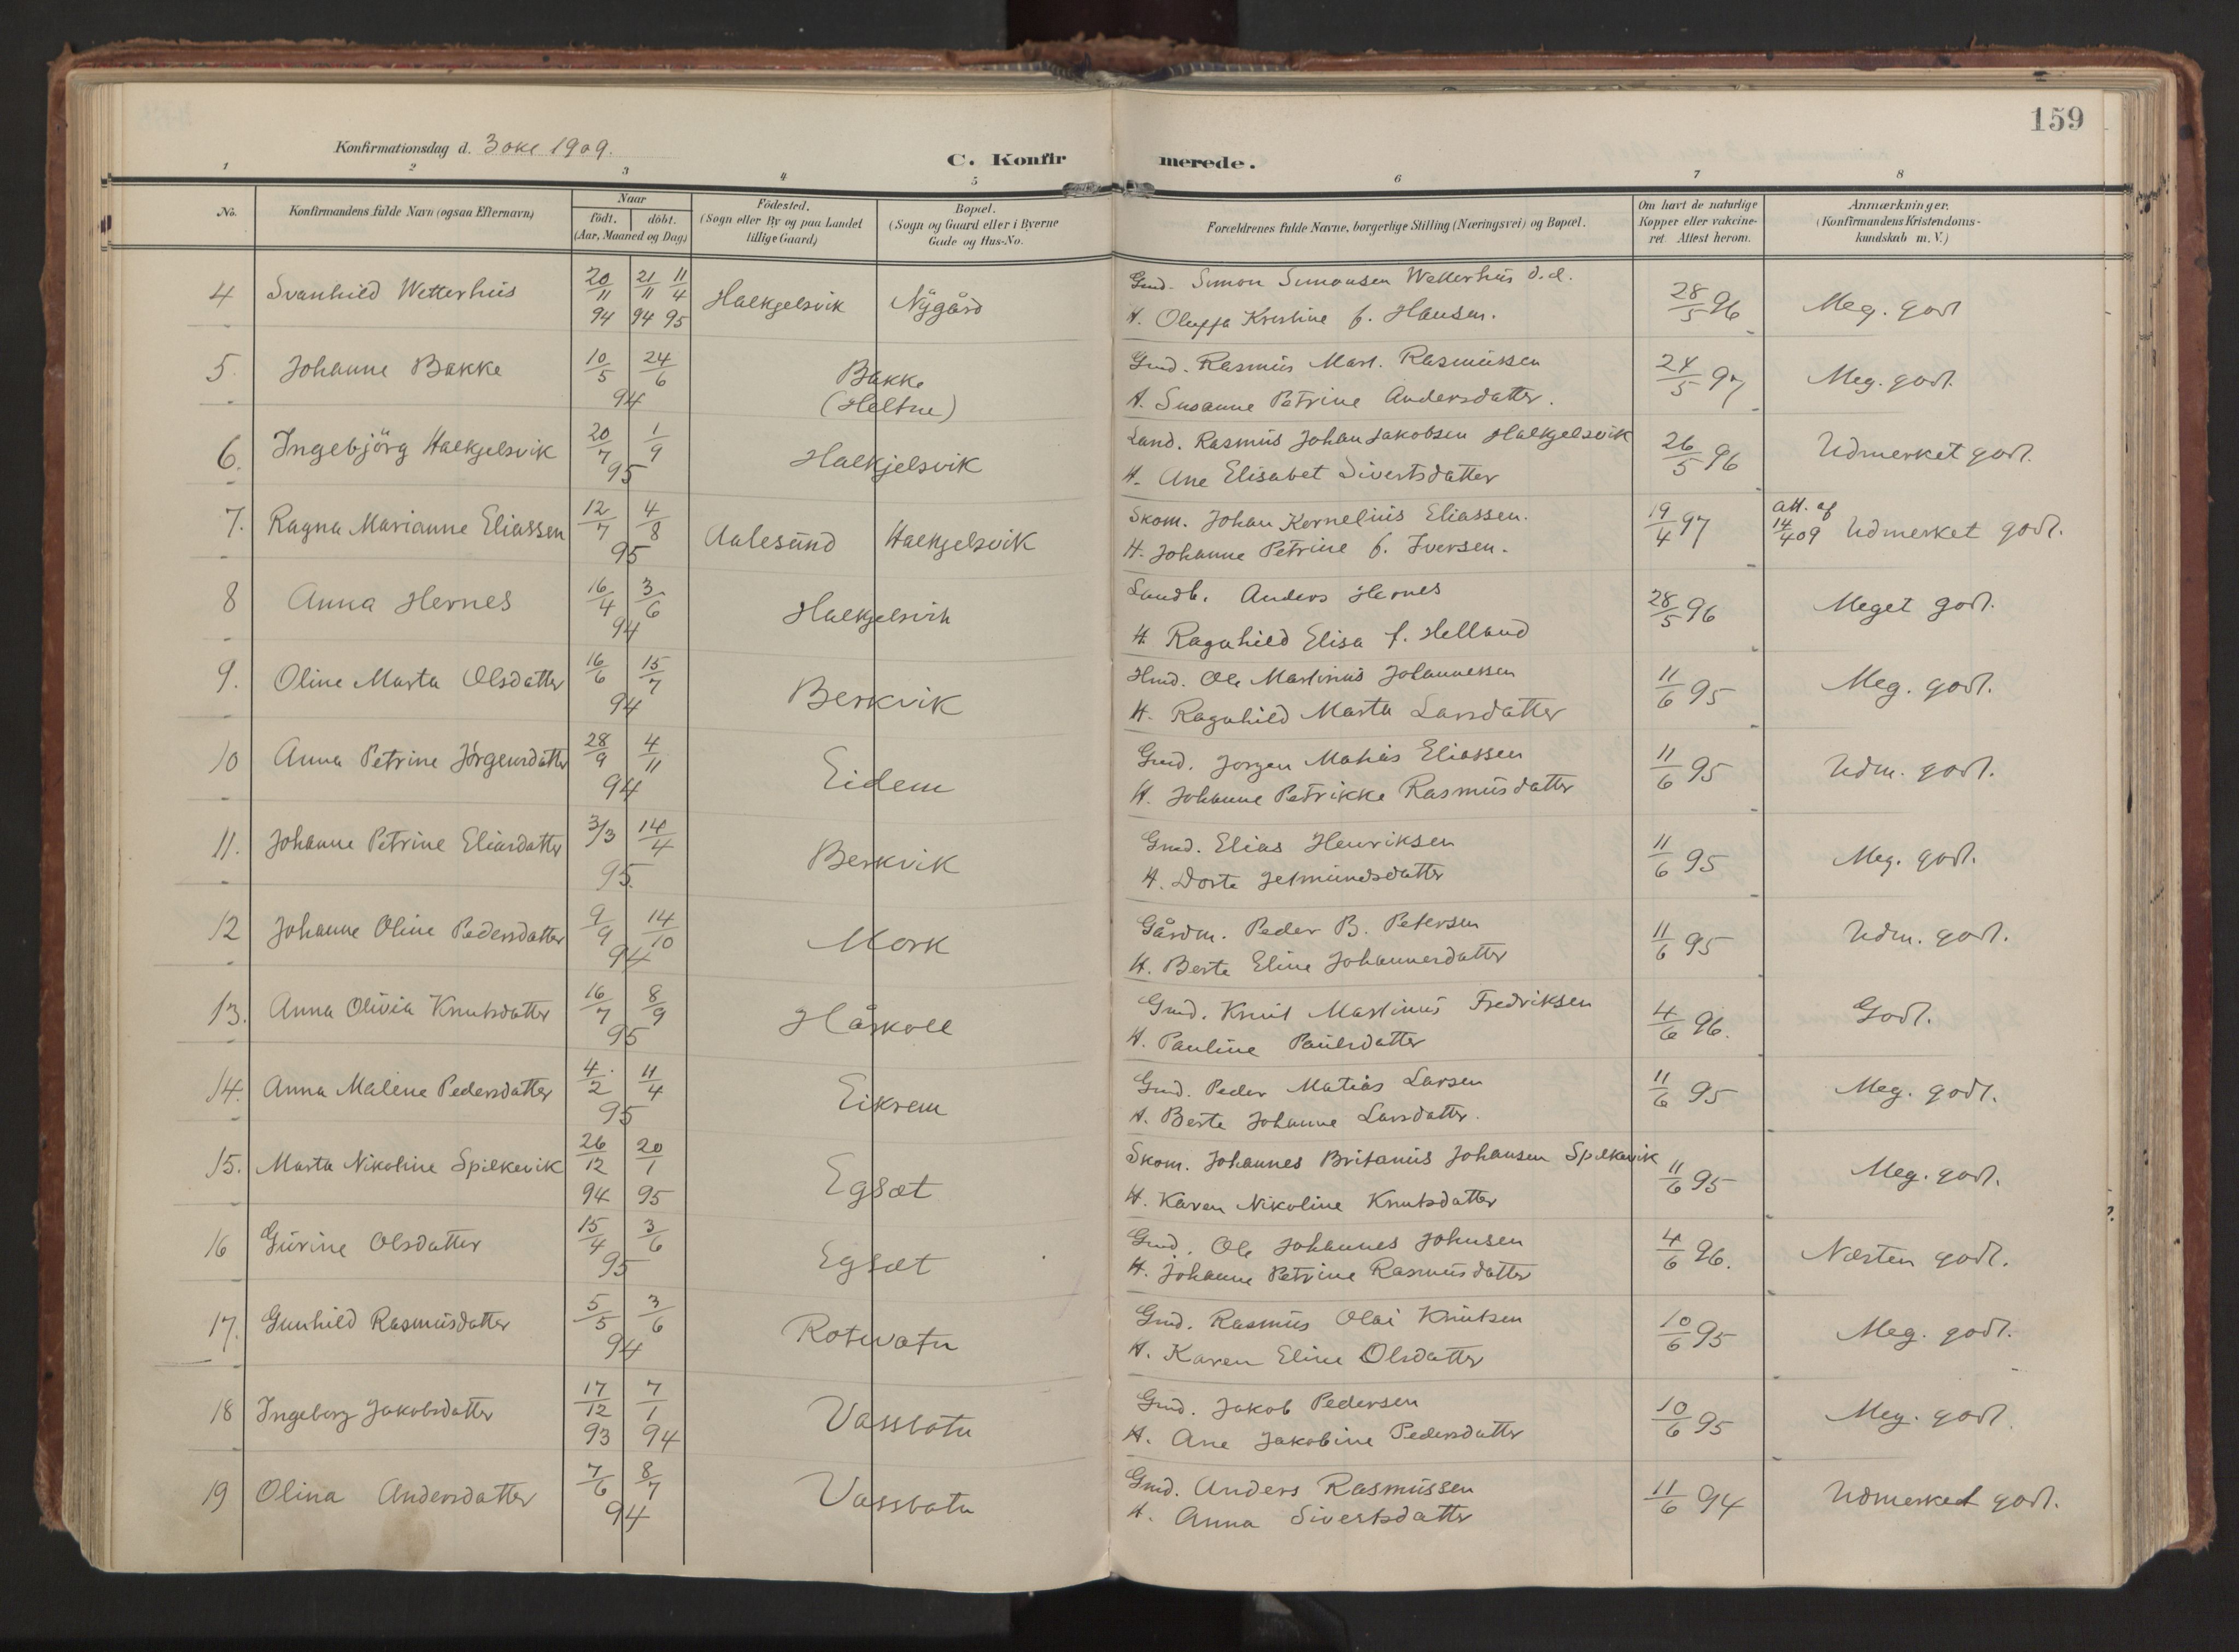 159
Konfirmationsdag d. 3 okt 1909.
C. Konfirmerede.
1 2 3 4 5 6 7 8
No.
Konfirmandens fulde Navn (ogsaa Efternavn)
Naar
födt. döbt.
(Aar, Maaned og Dag)
Födested.
(Sogn eller By og paa Landet
tillige Gaard)
Bopæl.
(Sogn og Gaard eller i Byerne
Gade og Hus-No.
Forældrenes fulde Navne, borgerlige Stilling (Næringsvei) og Bopæl.
Om havt de naturlige
Kopper eller vakcine-
ret. Attest herom.
Anmærkninger.
(Konfirmandens Kristendoms-
kundskab m. V.)
4 Svanhild Wetterhus 20/11 94 21/11 94 11/4 95 Halkjelsvik Nygård Gmd. Simon Simonsen Wetterhus d.d. 28/5 96 Meg. godt
H. Oluffa Kristine f. Hansen.
5. Johanne Bakke 10/5 24/6 94 Bakke (Heltne) Gmd. Rasmus Mart. Rasmussen 24/5 97 Meg. godt.
H. Susanne Petrine Andersdatter.
6. Ingebjörg Halkjelsvik 20/7 1/9 95 Halkjelsvik Land. Rasmus Johan Jakobsen Halkjelsvik 26/5 96 Udmerket godt.
H. Ane Elisabet Sivertsdatter
7. Ragna Marianne Eliassen 12/7 4/8 95 Aalesund Halkjelsvik Skom. Johan Kornelius Eliassen. 19/4 97 att. af 14/4 09 Udmerket godt.
H. Johanne Petrine f. Iversen.
8 Anna Hernes 16/4 3/6 94 Halkjelsvik Landb. Anders Hernes 28/5 96 Meget godt.
H Ragnhild Elisa f. Helland
9. Oline Marta Olsdatter 16/6 15/7 94 Berkvik Hmd. Ole Martinus Johannessen 11/6 95 Meg. godt.
H. Ragnhild Marta Larsdatter
10 Anna Petrine Jörgensdatter 28/9 4/11 94 Eidem Gmd. Jorgen Matias Eliassen 11/6 95 Udm. godt.
H. Johanne Petrikke Rasmusdatter
11. Johanne Petrine Eliasdatter 3/3 14/4 95. Berkvik Gmd. Elias Henriksen 11/6 95 Meg. godt.
H. Dorte Jetmundsdatter
12 Johanne Oline Pedersdatter 9/9 14/10 94 Mork Gårdm. Peder B. Petersen 11/6 95 Udm. godt.
H. Berte Eline Johannesdatter
13. Anna Olivia Knutsdatter 16/7 8/9 95 Håskoll Gmd. Knut Martinus Fredriksen 4/6 96. Godt.
H. Pauline Paulsdatter
14. Anna Malene Pedersdatter 4/2 11/4 95 Eikrem Gmd. Peder Matias Larsen 11/6 95 Meg. godt.
H. Berte Johanne Larsdatter.
15. Marta Nikoline Spilkevik 26/12 94 20/1 95 Egsæt Skom. Johannes Britanius Johansen Spilkevik 11/6 95 Meg. godt.
H. Karen Nikoline Knutsdatter
16 Gurine Olsdatter 15/4 3/6 95 Egsæt Gmd. Ole Johannes Johnsen 4/6 96. Næsten godt.
H. Johanne Petrine Rasmusdatter
17. Gunhild Rasmusdatter 5/5 3/6 94 Rotevatn Gmd. Rasmus Olai Knutsen 10/6 95 Meg. godt.
H. Karen Eline Olsdatter
18 Ingeborg Jakobsdatter 17/12 93 7/1 94 Vassbotn Gmd. Jakob Pedersen 10/6 95 Meg. godt.
H. Ane Jakobine Pedersdatter
19 Olina Andersdatter 7/6 8/7 94 Vassbotn Gmd. Anders Rasmussen 11/6 94 Udmerket godt.
H. Anna Sivertsdatter